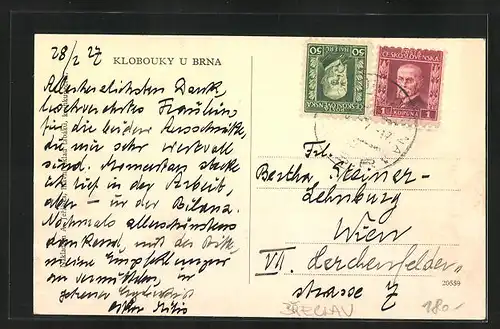 28/2 27
KLOBOUKY U BRNA
Allerherzlichsten Dank,
hochverehrtes Fräulein,
für die beiden Ausschnitte,
die mir sehr wertvoll
sind. Momentan stecke
ich tief in der Arbeit,
aber – in der Bilanz.
Nochmals allerschönstens
dankend, mit der Bitte,
meine Empfehlungen
zu vermitteln, Ihr
50
HALÉŘŮ
ČESKOSLOVENSKO
ČESKOSLOVENSKO
1 KORUNA 1
Frl.
Bertha Steiner-
Lehnburg
Wien
VII. Lerchenfelder-
strasse 7
20539
BŘECLAV
180.-